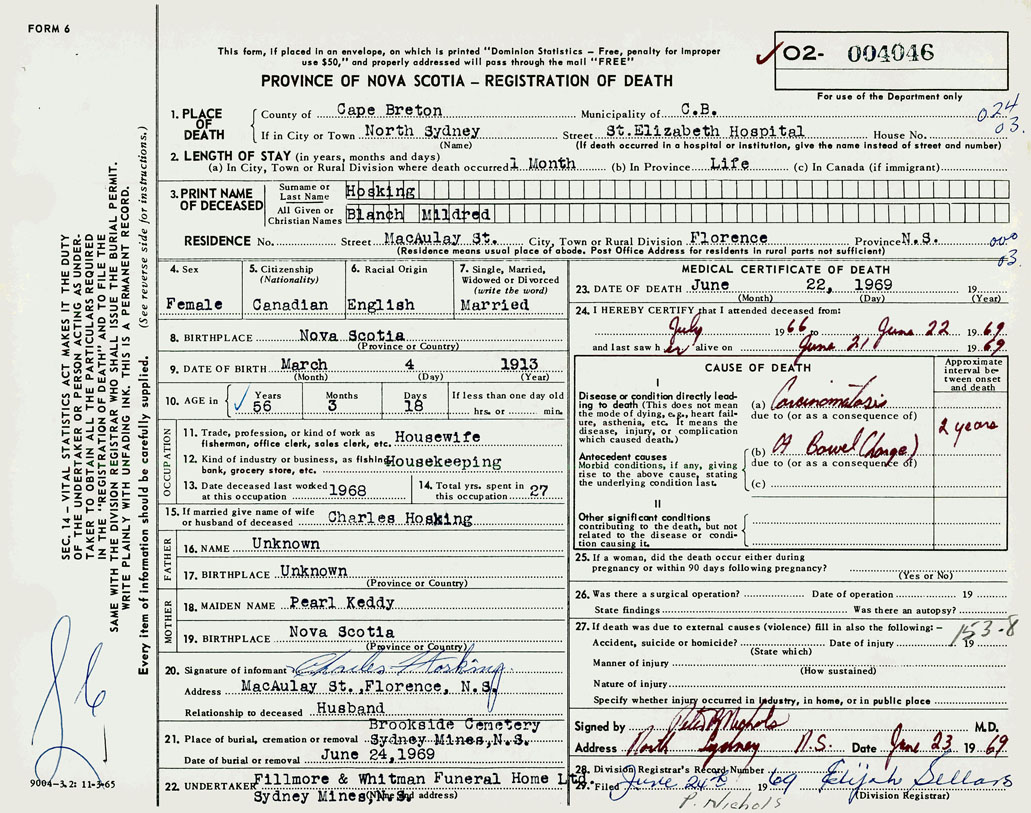 FORM 6
This form, if placed in an envelope, on which is printed "Dominion Statistics – Free, penalty for improper
use $50," and properly addressed will pass through the mail "FREE"
PROVINCE OF NOVA SCOTIA – REGISTRATION OF DEATH
✓ O2- 004046
For use of the Department only
024
03.
1. PLACE OF DEATH
County of Cape Breton Municipality of C.B.
If in City or Town North Sydney Street St.Elizabeth Hospital House No.
(Name) (If death occurred in a hospital or institution, give the name instead of street and number)
2. LENGTH OF STAY (in years, months and days)
(a) In City, Town or Rural Division where death occurred 1 Month (b) In Province Life (c) In Canada (if immigrant)
3. PRINT NAME OF DECEASED
Surname or Last Name Hosking
All Given or Christian Names Blanch Mildred
RESIDENCE No. Street MacAulay St. City, Town or Rural Division Florence Province N.S.
(Residence means usual place of abode. Post Office Address for residents in rural parts not sufficient)
000
03.
4. Sex
Female
5. Citizenship
(Nationality)
Canadian
6. Racial Origin
English
7. Single, Married,
Widowed or Divorced
(write the word)
Married
8. BIRTHPLACE Nova Scotia
(Province or Country)
9. DATE OF BIRTH March 4 1913
(Month) (Day) (Year)
10. AGE in ✓ Years Months Days If less than one day old
56 3 18 hrs. or min.
OCCUPATION
11. Trade, profession, or kind of work as
fisherman, office clerk, sales clerk, etc. Housewife
12. Kind of industry or business, as fishing
bank, grocery store, etc. Housekeeping
13. Date deceased last worked
at this occupation 1968
14. Total yrs. spent in
this occupation 27
15. If married give name of wife
or husband of deceased Charles Hosking
FATHER
16. NAME Unknown
17. BIRTHPLACE Unknown
(Province or Country)
MOTHER
18. MAIDEN NAME Pearl Keddy
19. BIRTHPLACE Nova Scotia
(Province or Country)
20. Signature of informant Charles Hosking
Address MacAulay St.,Florence, N.S.
Relationship to deceased Husband
Brookside Cemetery
21. Place of burial, cremation or removal Sydney Mines,N.S.
Date of burial or removal June 24,1969
22. UNDERTAKER Fillmore & Whitman Funeral Home Ltd.
Sydney Mines,N.S.
(Name and address)
MEDICAL CERTIFICATE OF DEATH
23. DATE OF DEATH June 22, 1969 19
(Month) (Day) (Year)
24. I HEREBY CERTIFY that I attended deceased from:
July 1966 to June 22 1969
and last saw her alive on June 21 1969.
CAUSE OF DEATH
Approximate
interval be-
tween onset
and death
I
Disease or condition directly lead-
ing to death (This does not mean
the mode of dying, e.g., heart fail-
ure, asthenia, etc. It means the
disease, injury, or complication
which caused death.)
(a) Carcinomatosis
due to (or as a consequence of)
2 years
Antecedent causes
Morbid conditions, if any, giving
rise to the above cause, stating
the underlying condition last.
(b) Of Bowel (large)
due to (or as a consequence of)
(c)
II
Other significant conditions
contributing to the death, but not
related to the disease or condi-
tion causing it.
25. If a woman, did the death occur either during
pregnancy or within 90 days following pregnancy?
(Yes or No)
26. Was there a surgical operation? Date of operation 19
State findings Was there an autopsy?
27. If death was due to external causes (violence) fill in also the following: –
153-8
Accident, suicide or homicide? Date of injury 19
(State which)
Manner of injury
(How sustained)
Nature of injury
Specify whether injury occurred in industry, in home, or in public place
Signed by Peter R Nichols M.D.
Address North Sydney N.S. Date June 23 1969
28. Division Registrar's Record Number
29. Filed June 24th 1969 Elijah Sellars
(Division Registrar)
P. Nichols
SEC. 14 – VITAL STATISTICS ACT MAKES IT THE DUTY
OF THE UNDERTAKER OR PERSON ACTING AS UNDER-
TAKER TO OBTAIN ALL THE PARTICULARS REQUIRED
IN THE "REGISTRATION OF DEATH" AND TO FILE THE
SAME WITH THE DIVISION REGISTRAR WHO SHALL ISSUE THE BURIAL PERMIT.
WRITE PLAINLY WITH UNFADING INK. THIS IS A PERMANENT RECORD.
Every item of information should be carefully supplied. (See reverse side for instructions.)
9004–3.2: 11-3-65